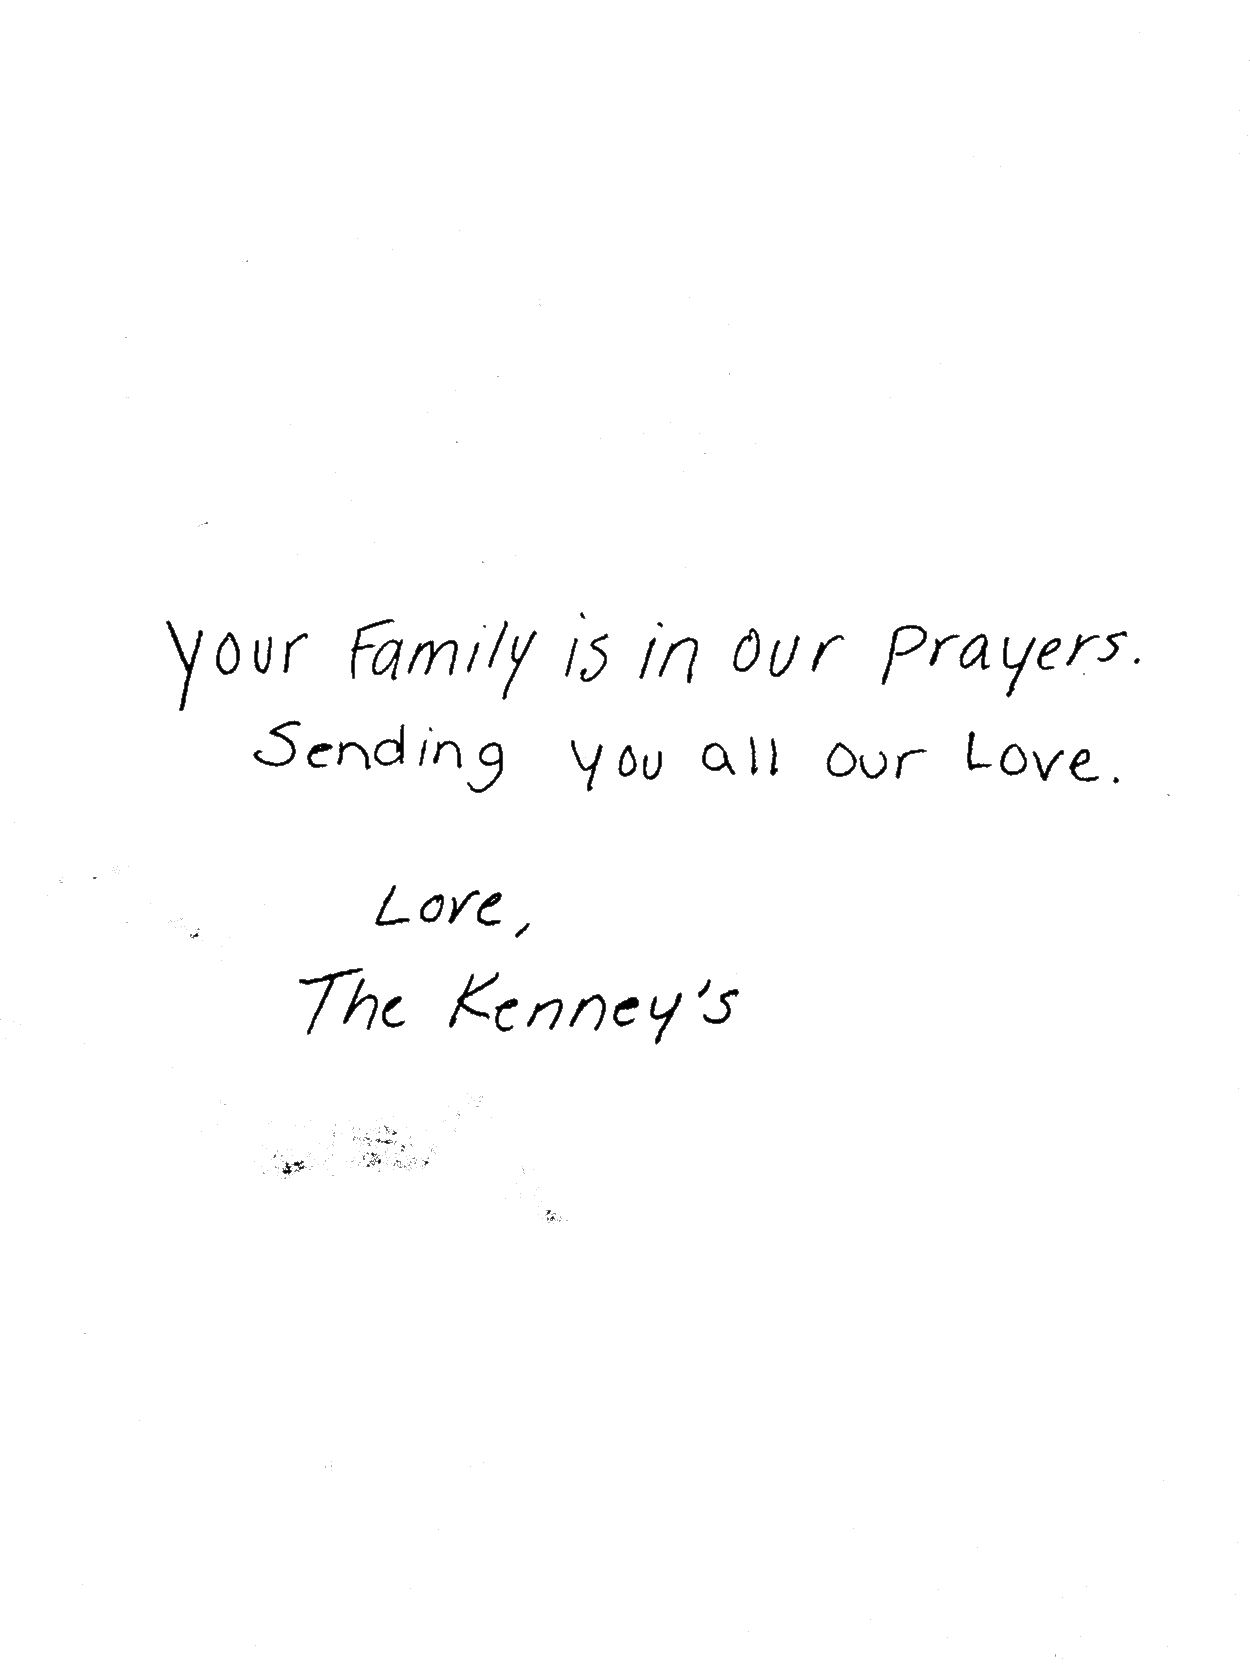 Your Family is in our Prayers.
Sending you all our Love.
Love,
The Kenney's